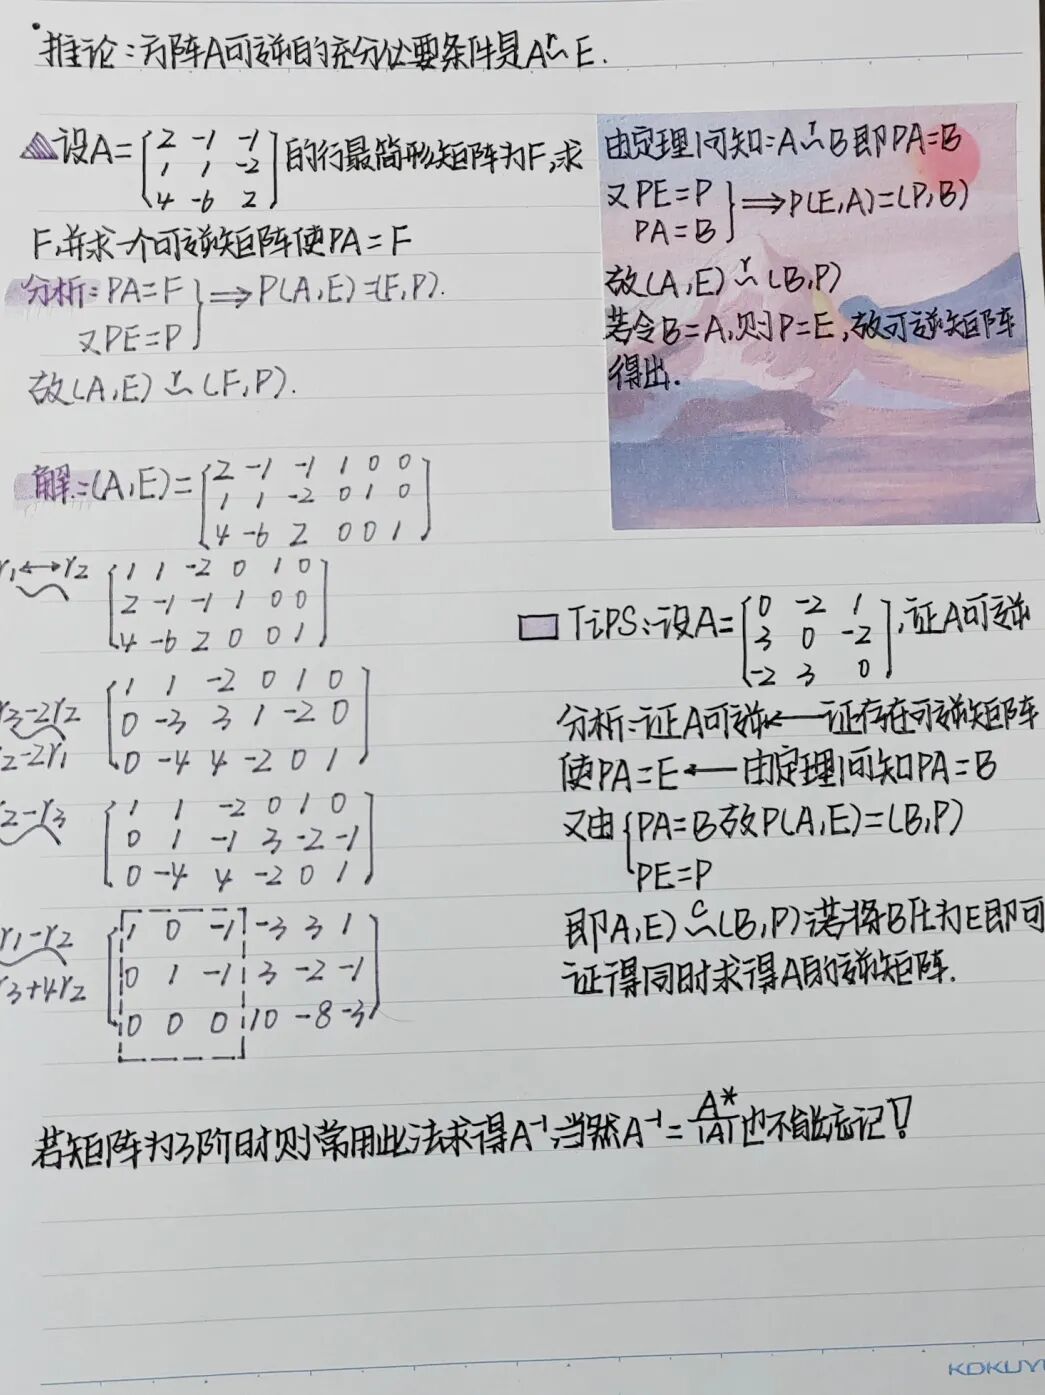 推论:方阵A可逆的充分必要条件是A r~ E.
设A=[2 -1 -1
1 1 -2
4 -6 2]的行最简形矩阵为F,求
F,并求一个可逆矩阵使PA=F
分析:PA=F
又PE=P } ⟹ P(A,E)=(F,P).
故(A,E) r~ (F,P).
由定理1可知:A r~ B即PA=B
又PE=P
PA=B } ⟹ P(E,A)=(P,B)
故(A,E) r~ (B,P)
若令B=A,则P=E,故可逆矩阵
得出.
解:(A,E)=[2 -1 -1 1 0 0
1 1 -2 0 1 0
4 -6 2 0 0 1]
r1↔r2 [1 1 -2 0 1 0
2 -1 -1 1 0 0
4 -6 2 0 0 1]
r3-2r2 [1 1 -2 0 1 0
0 -3 3 1 -2 0
r2-2r1 0 -4 4 -2 0 1]
r2-r3 [1 1 -2 0 1 0
0 1 -1 3 -2 -1
0 -4 4 -2 0 1]
r1-r2 [1 0 -1 -3 3 1
0 1 -1 3 -2 -1
r3+4r2 0 0 0 10 -8 -3]
TiPS:设A=[0 -2 1
3 0 -2
-2 3 0],证A可逆
分析:证A可逆←证存在可逆矩阵
使PA=E←由定理1可知PA=B
又由{PA=B故P(A,E)=(B,P)
PE=P
即A,E) c~ (B,P)若将B化为E即可
证得同时求得A的逆矩阵.
若矩阵为3阶时则常用此法求得A⁻¹,当然A⁻¹=A*/|A|也不能忘记!
KOKUY